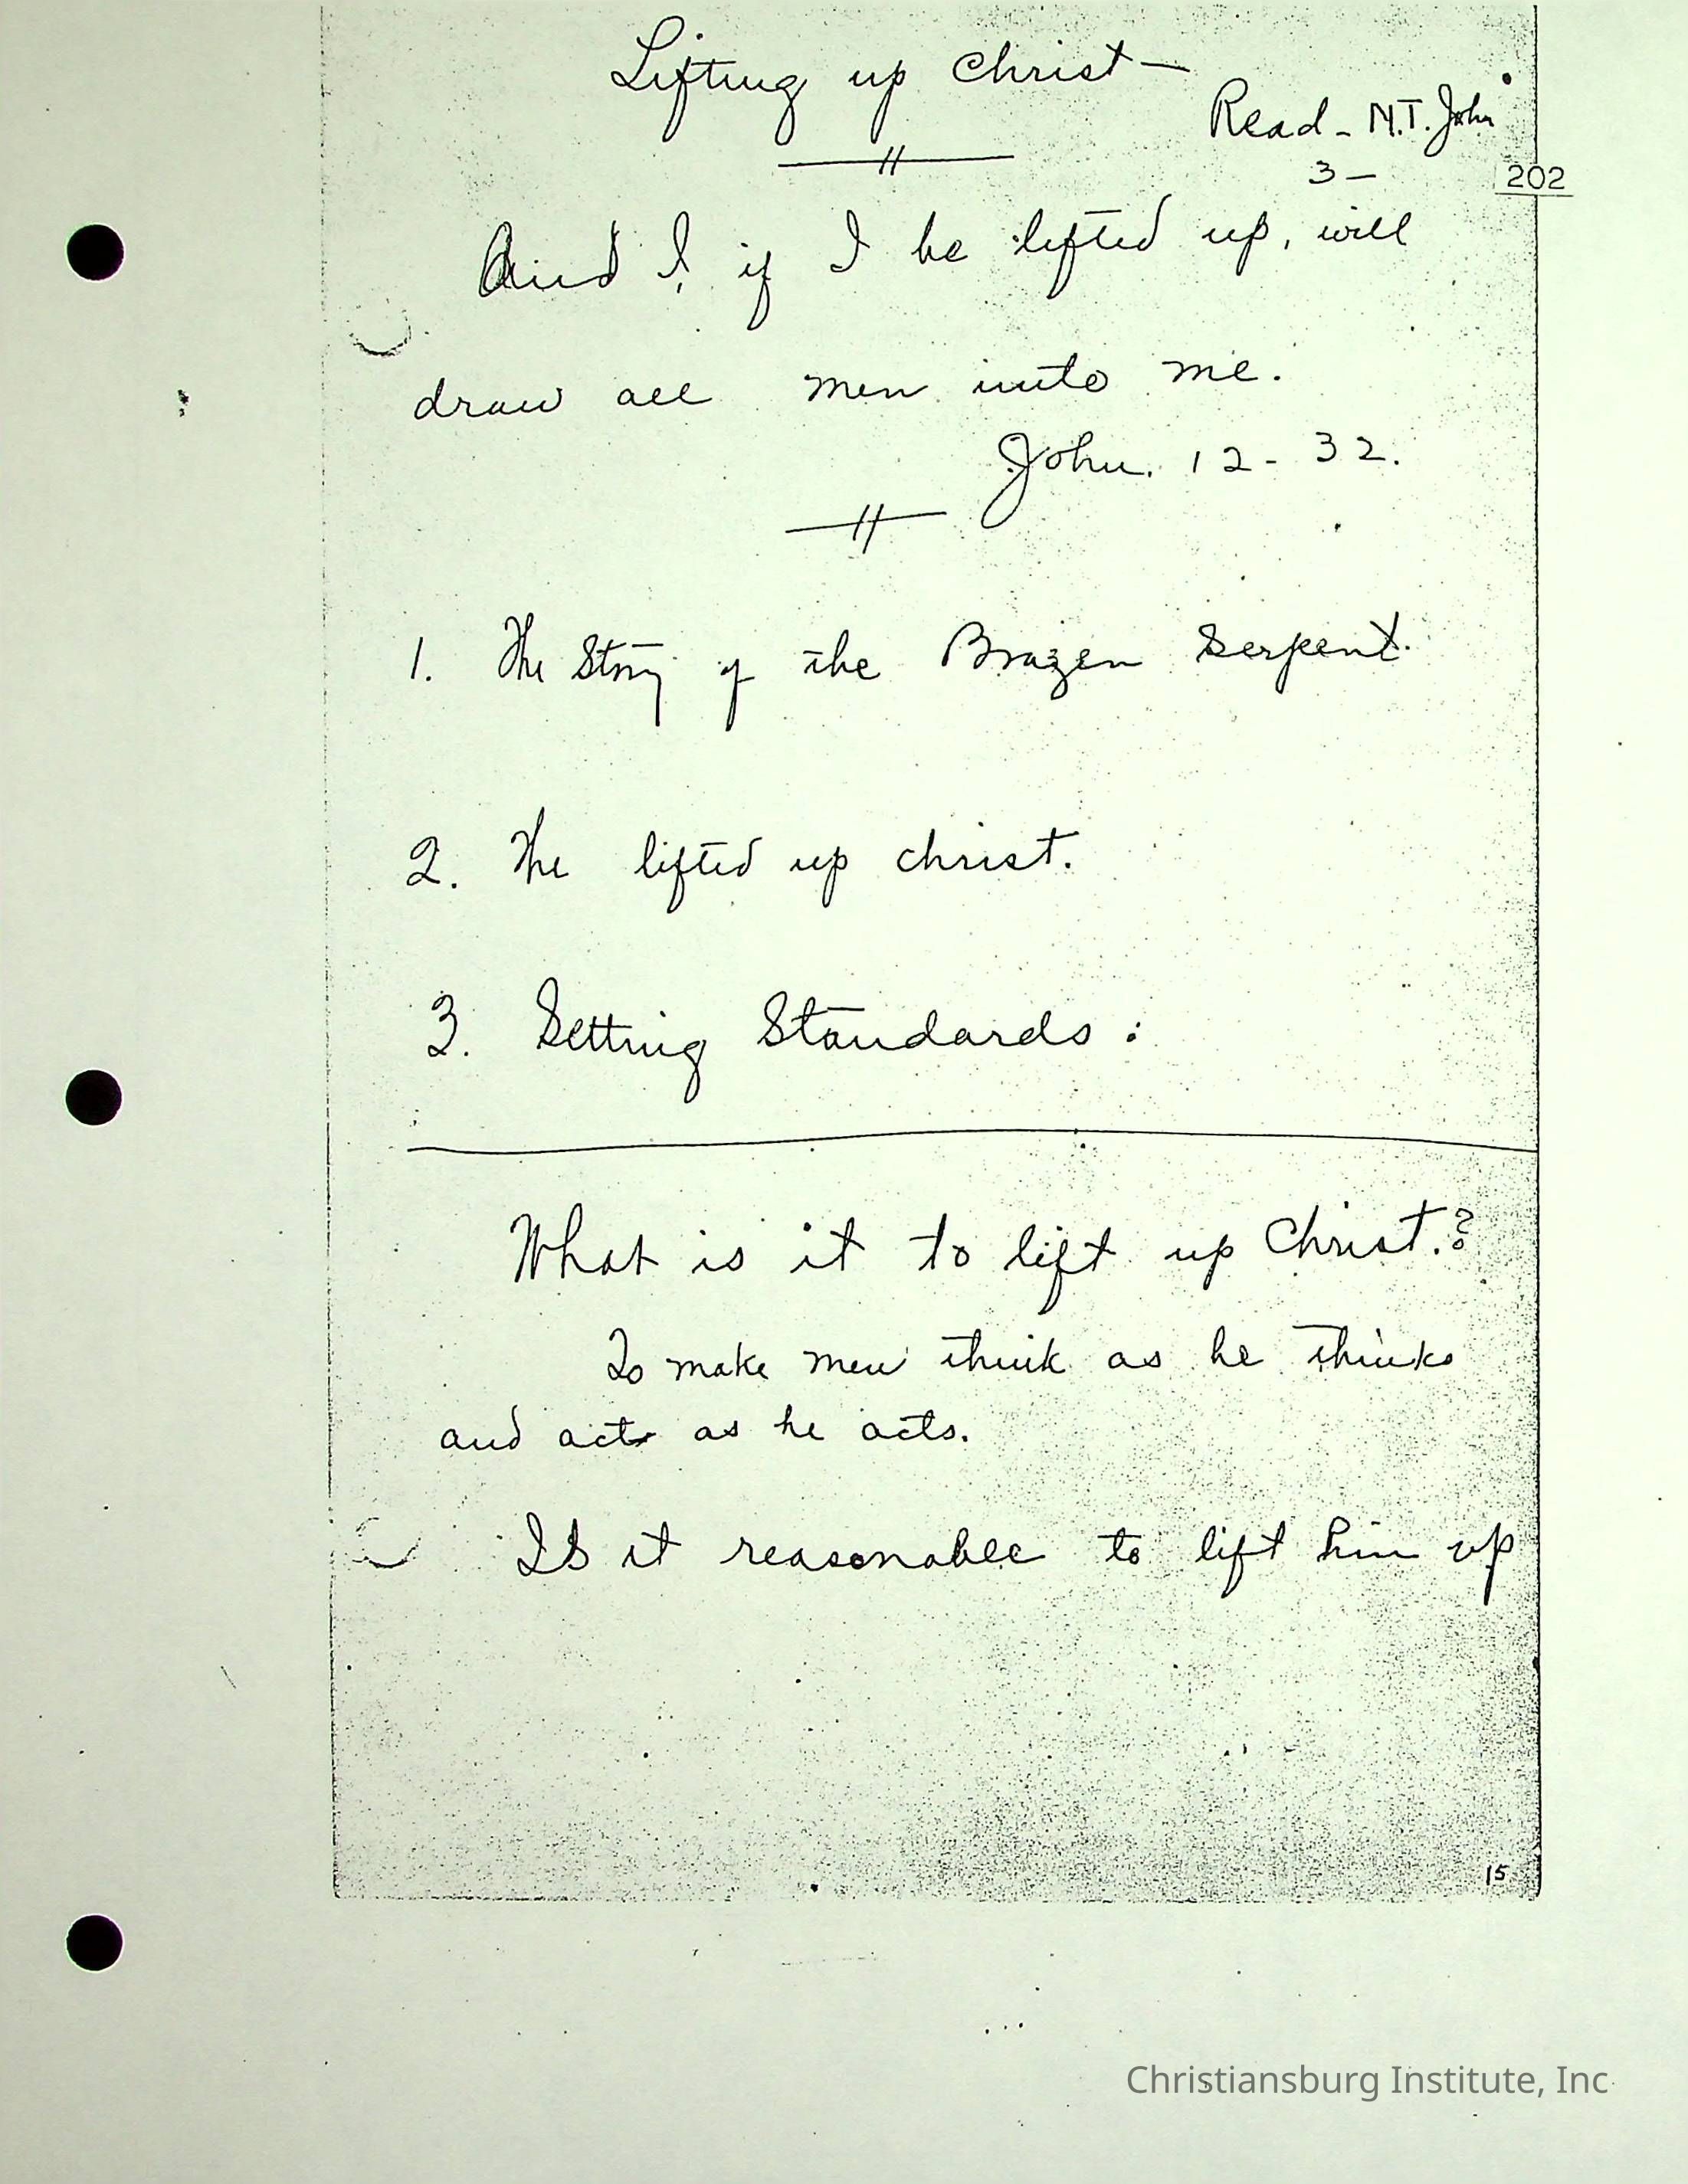 Lifting up Christ —
Read - N.T. John
3 —
202
And I, if I be lifted up, will
draw all men unto me.
John. 12 - 32.
1. The Story of the Brazen Serpent.
2. The lifted up Christ.
3. Setting Standards:
What is it to lift up Christ.?
To make men think as he thinks
and act as he acts.
Is it reasonable to lift him up
15
Christiansburg Institute, Inc